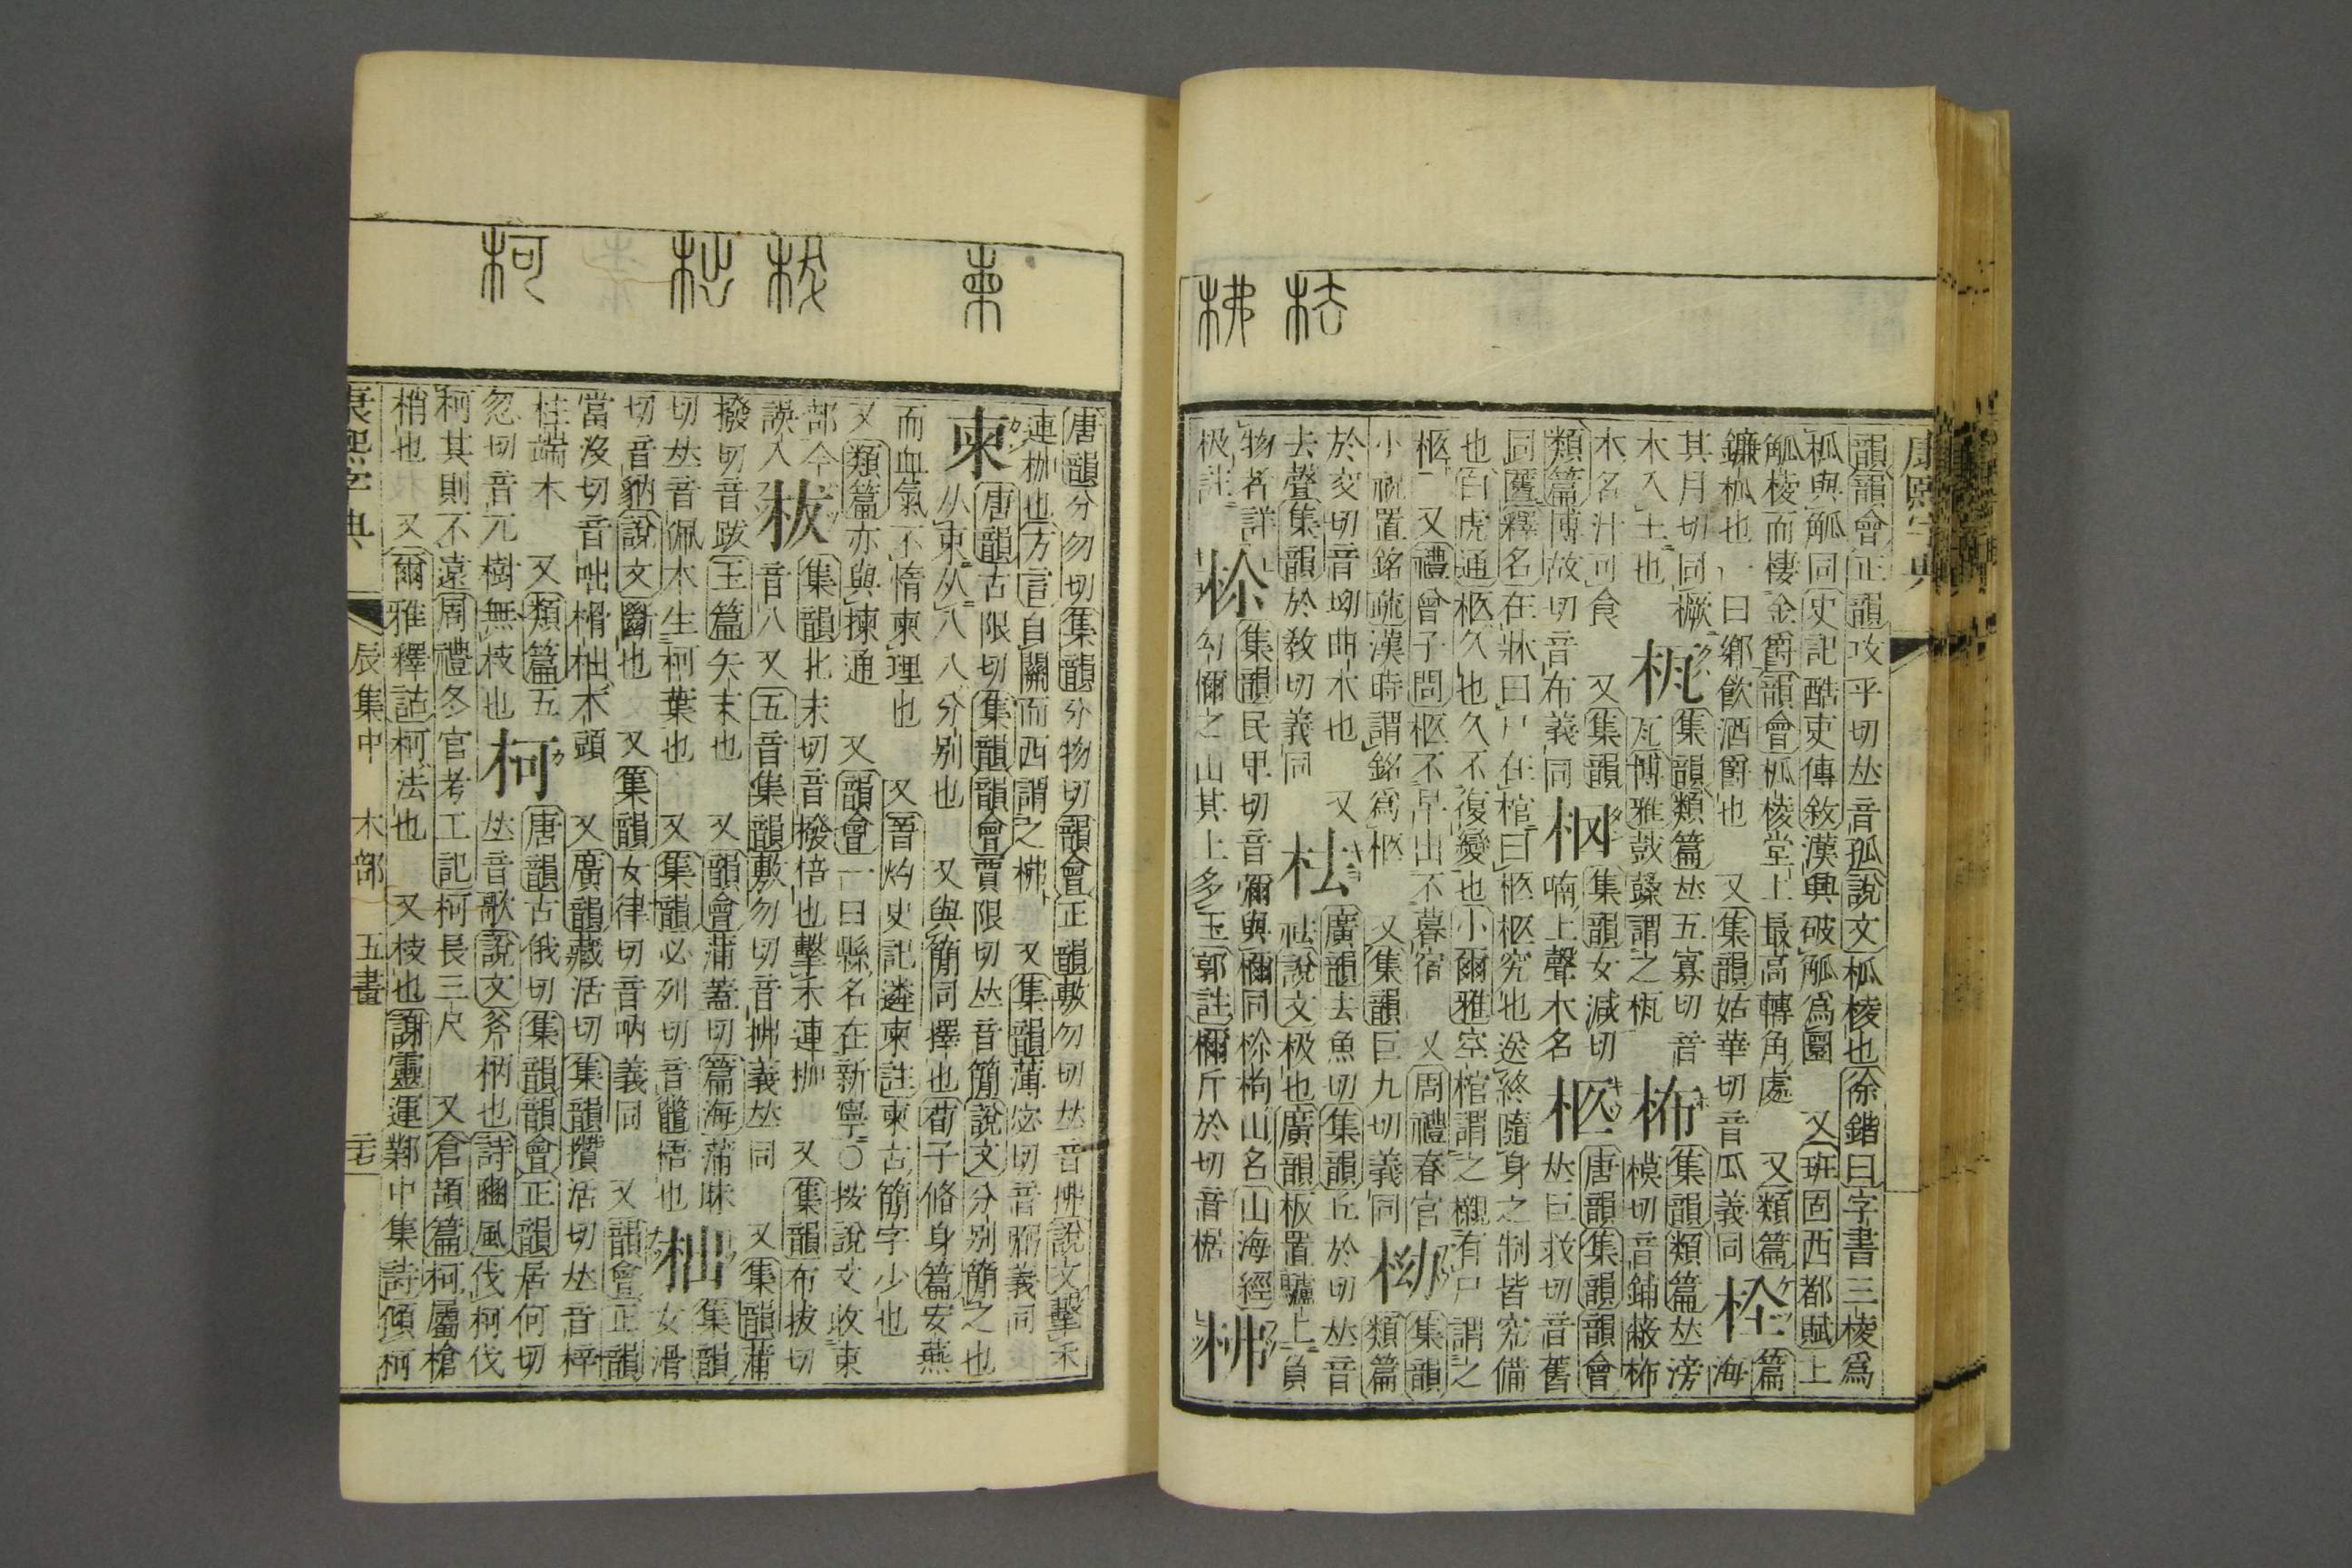 康熙字典
韻韻會正韻攻乎切𠀤音孤說文柧棱也徐鍇曰字書三棱爲
柧與觚同史記酷吏傳敘漢興破觚爲圜 又班固西都賦上
觚棱而棲金爵韻會柧棱堂上最高轉角處 又類篇 篇
鐮柧也一曰鄉飲酒爵也 又集韻姑華切音瓜義同 海
其月切同橛 集韻類篇𠀤五寡切音 集韻類篇𠀤滂
木入土也 瓦博雅鼓謂之 柨 模切音鋪蔽柨
木名汁可食 又集韻 集韻女減切 唐韻集韻韻會
類篇博故切音布義同 喃上聲木名 柩 𠀤巨救切音舊
同匶釋名在牀曰尸在棺曰柩柩究也送終隨身之制皆究備
也白虎通柩久也久不復變也小爾雅空棺謂之櫬有尸謂之
柩 又禮曾子問柩不早出不暮宿 又周禮春官 集韻
小祝置銘疏漢時謂銘爲柩 又集韻巨九切義同 柪 類篇
於交切音坳曲木也 又 廣韻去魚切集韻丘於切𠀤音
去聲集韻於敎切義同 㭕 祛說文极也廣韻板置驢上負
物者詳 集韻民甲切音彌與檷同枸山名山海經
极註 勾檷之山其上多玉郭註檷斤於切音椐 柫
唐韻分勿切集韻分物切韻會正韻敷勿切𠀤音拂說文擊禾
連枷也方言自關而西謂之柫 又集韻薄宓切音弼義同
唐韻古限切集韻韻會賈限切𠀤音簡說文分別簡之也
柬 从束从八八分別也 又與簡同擇也荀子修身篇安燕
而血氣不惰柬理也 又晉灼史記遴柬註柬古簡字少也
又類篇亦與揀通 又韻會一曰縣名在新寧○按說文收束
部今 集韻北末切音撥棓也擊禾連枷 又集韻布拔切
誤入 柭 音八 又五音集韻敷勿切音拂義𠀤同 又集韻蒲
撥切音跋玉篇矢末也 又韻會蒲蓋切篇海蒲昧 集韻
切𠀤音佩木生柯葉也 又集韻必列切音虌梧也 柮 女滑
切音豽說文斷也 又集韻女律切音吶義同 又韻會正韻
當沒切音咄榾柮木頭 又廣韻藏活切集韻攢活切𠀤音椊
柱端木 又類篇五 唐韻古俄切集韻韻會正韻居何切
忽切音兀樹無枝也 柯 𠀤音歌說文斧柄也詩豳風伐柯伐
柯其則不遠周禮冬官考工記柯長三尺 又倉頡篇柯屬槍
梢也 又爾雅釋詁柯法也 又枝也謝靈運鄴中集詩傾柯
康熙字典 辰集中 木部 五畫